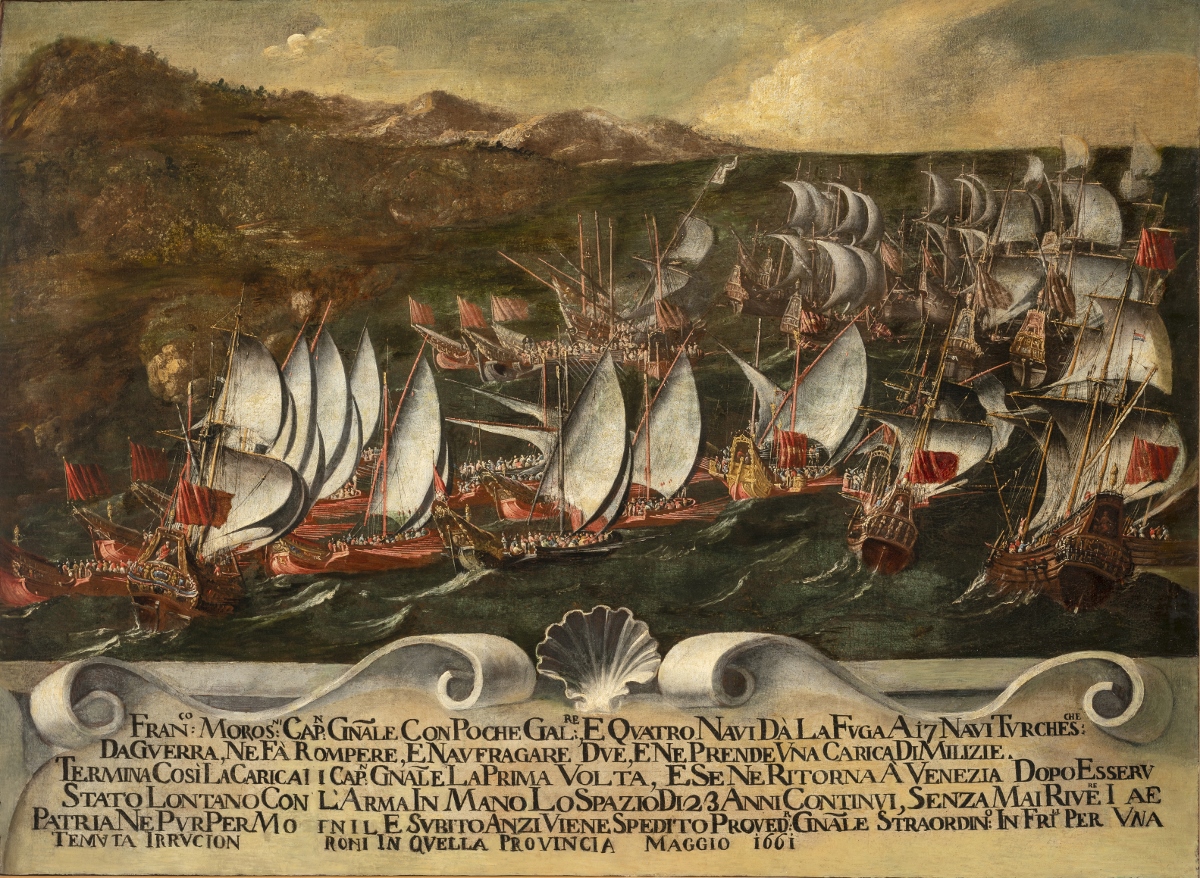 FRAN:CO MOROS:NI CAP.N GÑALE CON POCHE GAL:RE E QVATRO NAVI DÀ LA FVGA A 17 NAVI TVRCHES:CHE
DA GVERRA, NE FÀ ROMPERE, E NAVFRAGARE DVE, E NE PRENDE VNA CARICA DI MILIZIE.
TERMINA COSÌ LA CARICA DI CAP. GNALE LA PRIMA VOLTA, E SE NE RITORNA À VENEZIA DOPO ESSERV
STATO LONTANO CON L'ARMA IN MANO LO SPAZIO DI 23 ANNI CONTINVI, SENZA MAI
PATRIA NE PVR PER E SVBITO ANZI VIENE SPEDITO PROVED:R GÑALE STRAORDIN:O IN PER VNA
TEMVTA IRRVCION RONI IN QVELLA PROVINCIA MAGGIO 1661